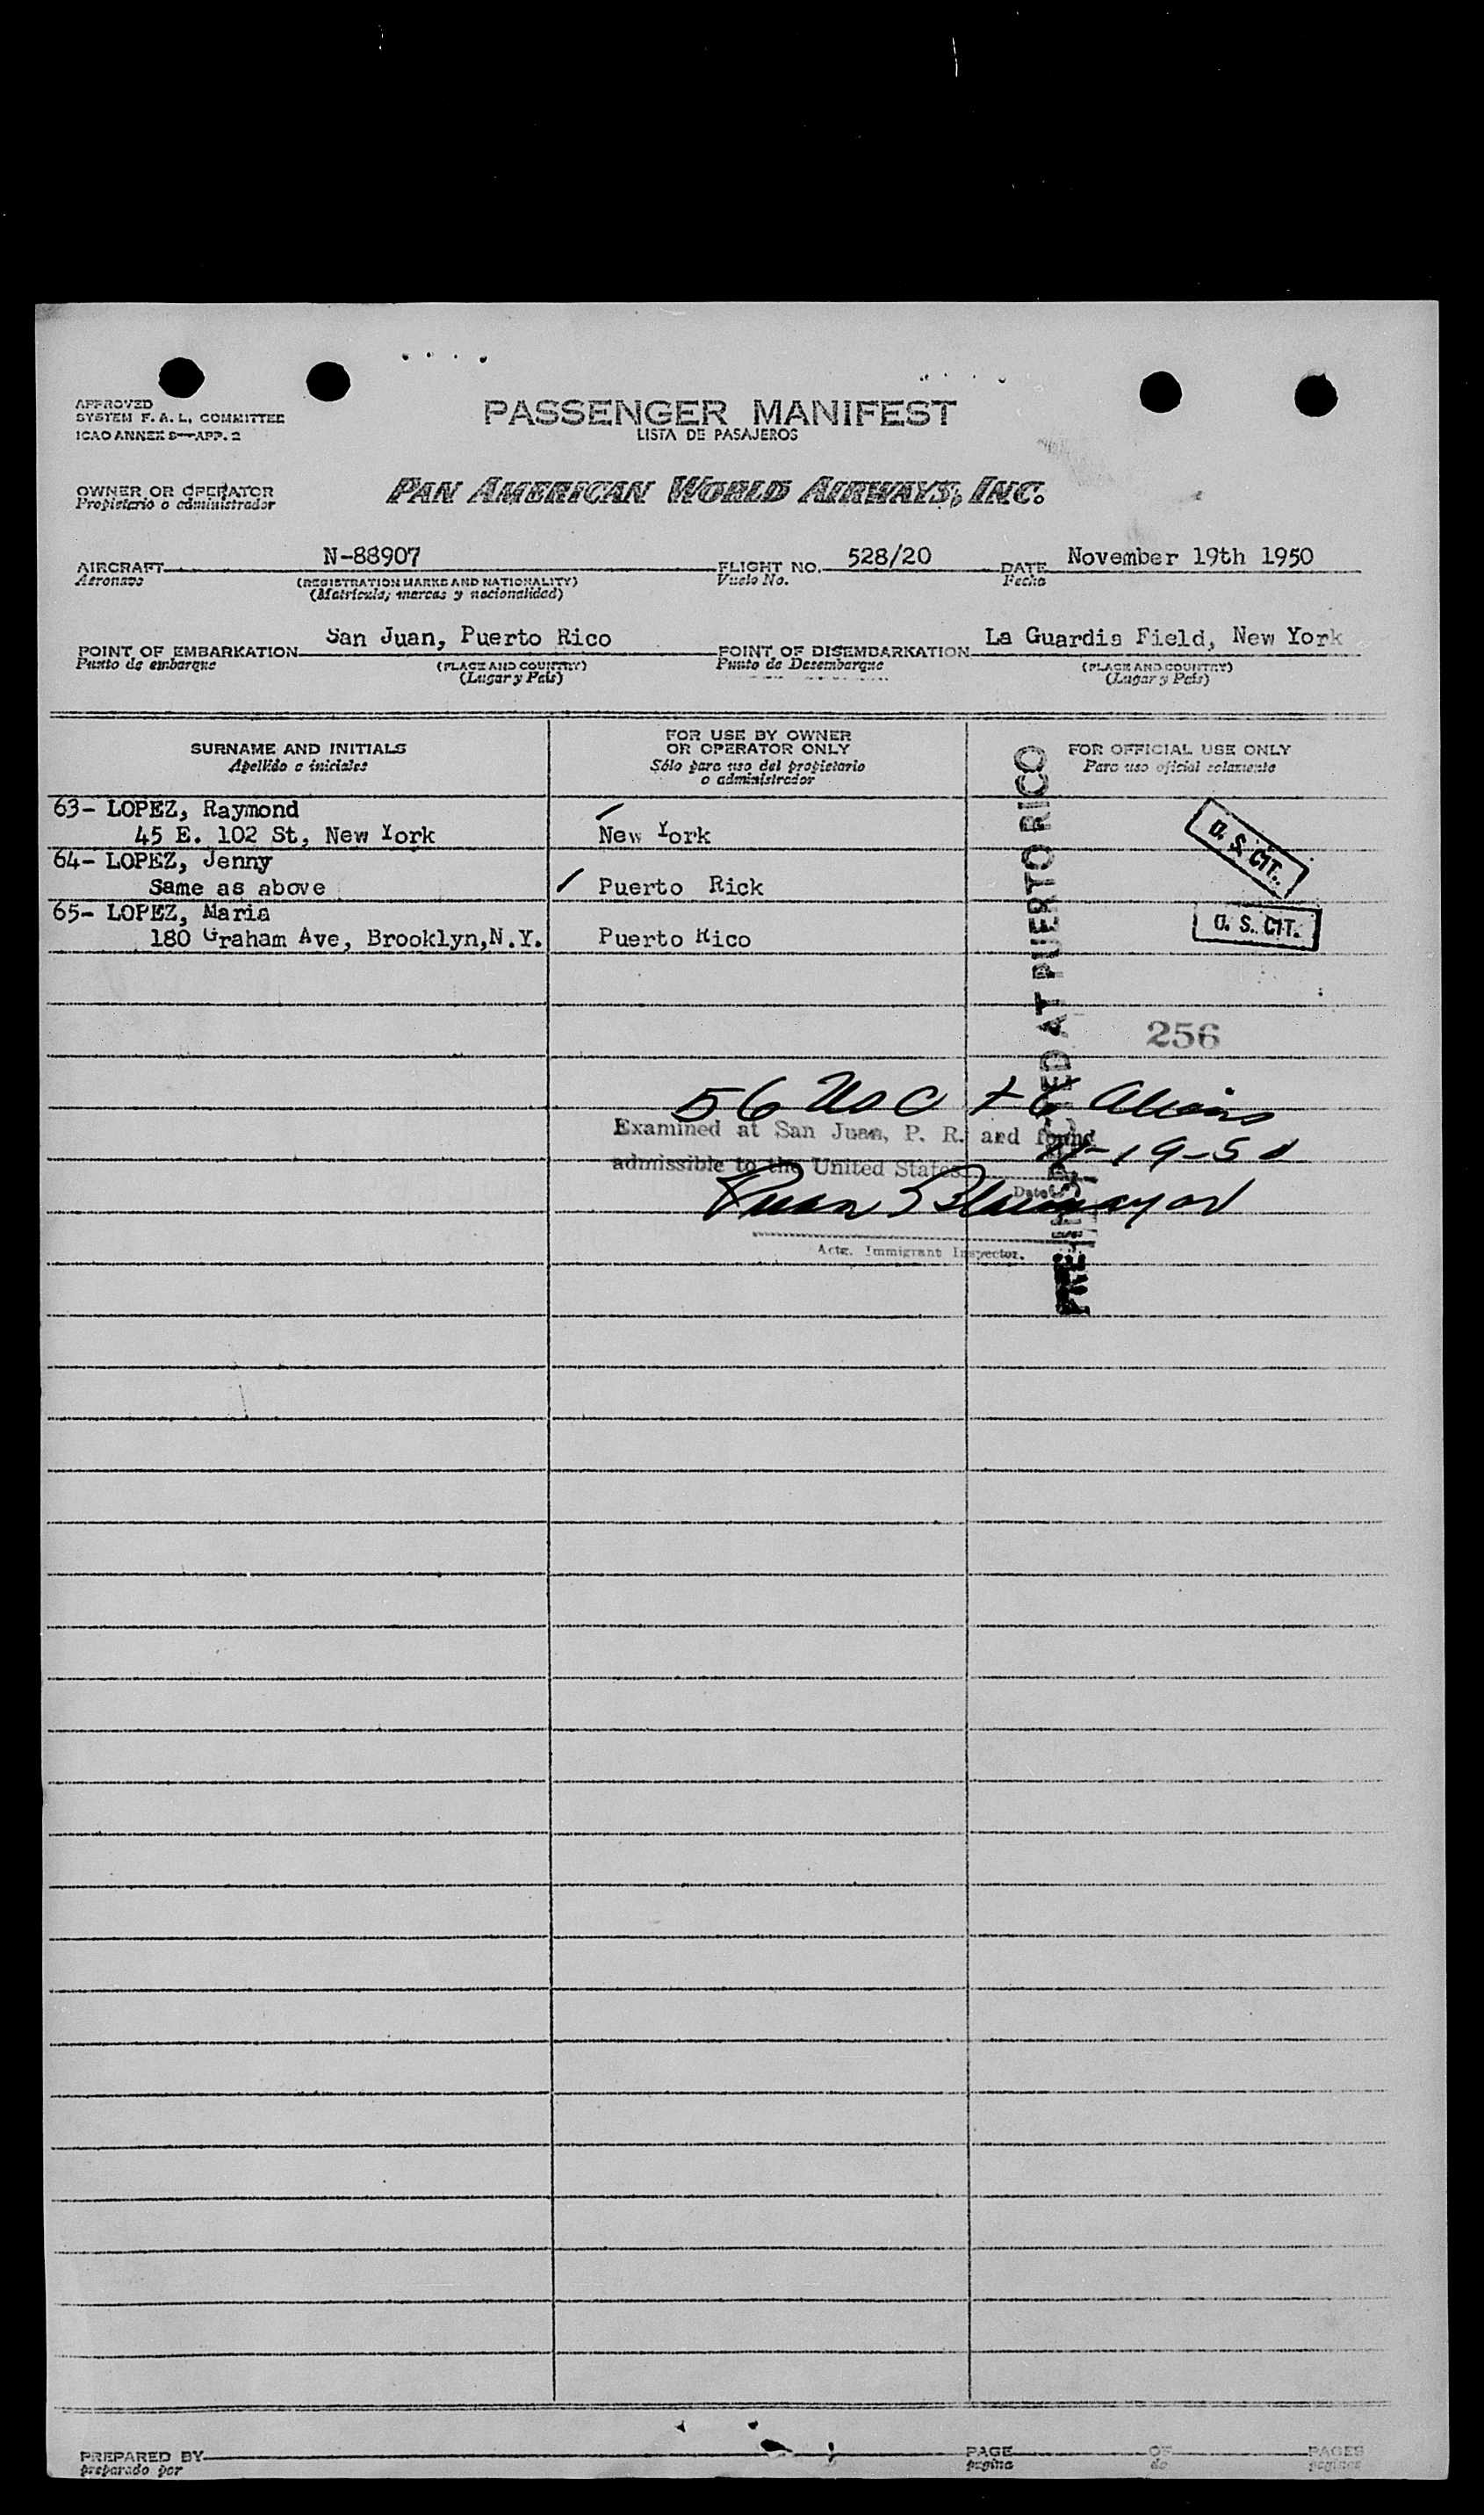 APPROVED
SYSTEM F. A. L. COMMITTEE
ICAO ANNEX 9—APP. 2
PASSENGER MANIFEST
LISTA DE PASAJEROS
OWNER OR OPERATOR
Propietario o administrador
PAN AMERICAN WORLD AIRWAYS, INC.
AIRCRAFT N-88907 FLIGHT NO. 528/20 DATE November 19th 1950
Aeronave (REGISTRATION MARKS AND NATIONALITY) Vuelo No. Fecha
(Matrícula, marcas y nacionalidad)
POINT OF EMBARKATION San Juan, Puerto Rico POINT OF DISEMBARKATION La Guardia Field, New York
Punto de embarque (PLACE AND COUNTRY) Punto de Desembarque (PLACE AND COUNTRY)
(Lugar y País) (Lugar y País)
SURNAME AND INITIALS
Apellido e iniciales
FOR USE BY OWNER
OR OPERATOR ONLY
Sólo para uso del propietario
o administrador
FOR OFFICIAL USE ONLY
Para uso oficial solamente
63- LOPEZ, Raymond
45 E. 102 St, New York New York
U. S. CIT.
64- LOPEZ, Jenny
Same as above Puerto Rick
65- LOPEZ, Maria
180 Graham Ave, Brooklyn,N.Y. Puerto Rico
U. S. CIT.
PRE-INSPECTED AT PUERTO RICO
256
56 USC + 6 Aliens
Examined at San Juan, P. R. and found
admissible to the United States 11-19-50
Date
Juan
Actg. Immigrant Inspector.
PREPARED BY PAGE OF PAGES
preparado por pagina de paginas